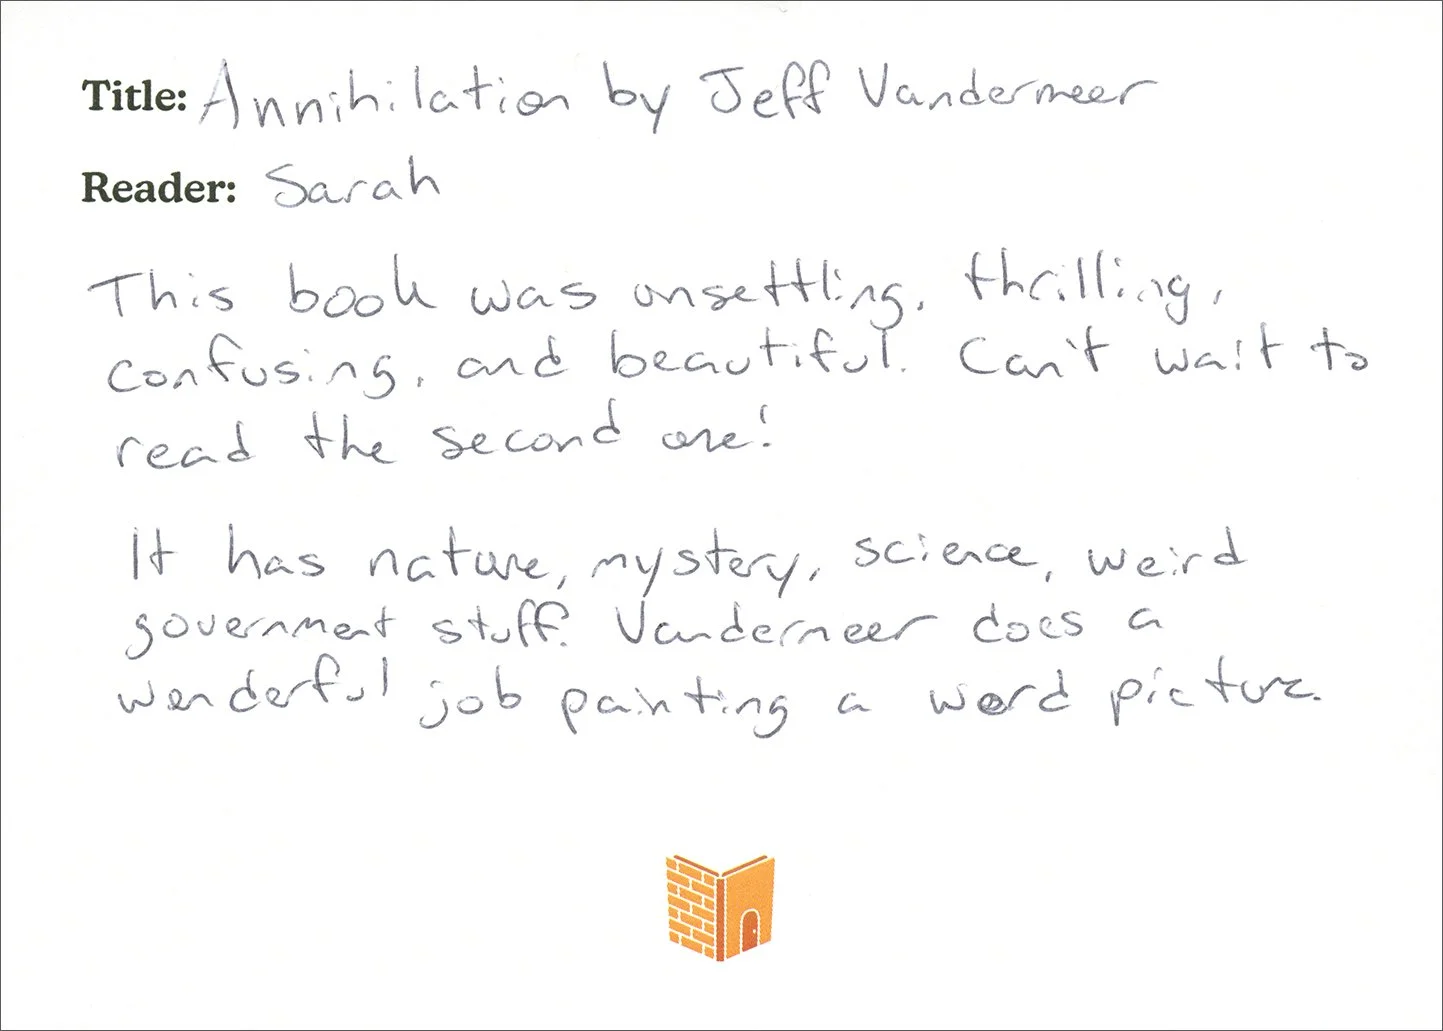 Title: Annihilation by Jeff Vandermeer
Reader: Sarah
This book was unsettling, thrilling,
confusing, and beautiful. Can't wait to
read the second one!
It has nature, mystery, science, weird
government stuff. Vandermeer does a
wonderful job painting a word picture.